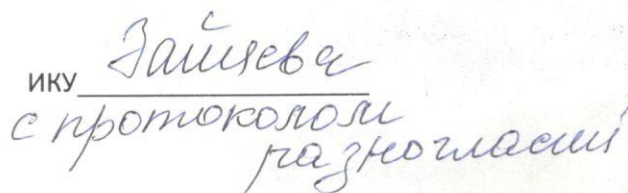 Зайцева
ику
с протоколом
разногласий